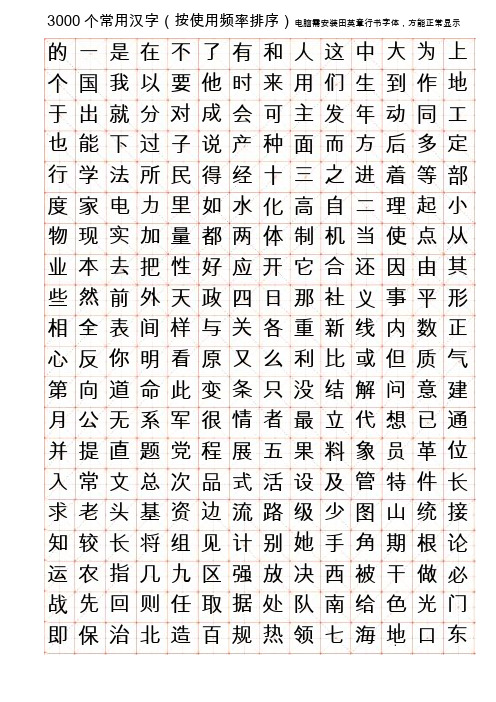 3000个常用汉字（按使用频率排序）电脑需安装田英章行书字体，方能正常显示
的一是在不了有和人这中大为上
个国我以要他时来用们生到作地
于出就分对成会可主发年动同工
也能下过子说产种面而方后多定
行学法所民得经十三之进着等部
度家电力里如水化高自二理起小
物现实加量都两体制机当使点从
业本去把性好应开它合还因由其
些然前外天政四日那社义事平形
相全表间样与关各重新线内数正
心反你明看原又么利比或但质气
第向道命此变条只没结解问意建
月公无系军很情者最立代想已通
并提直题党程展五果料象员革位
入常文总次品式活设及管特件长
求老头基资边流路级少图山统接
知较长将组见计别她手角期根论
运农指几九区强放决西被干做必
战先回则任取据处队南给色光门
即保治北造百规热领七海地口东